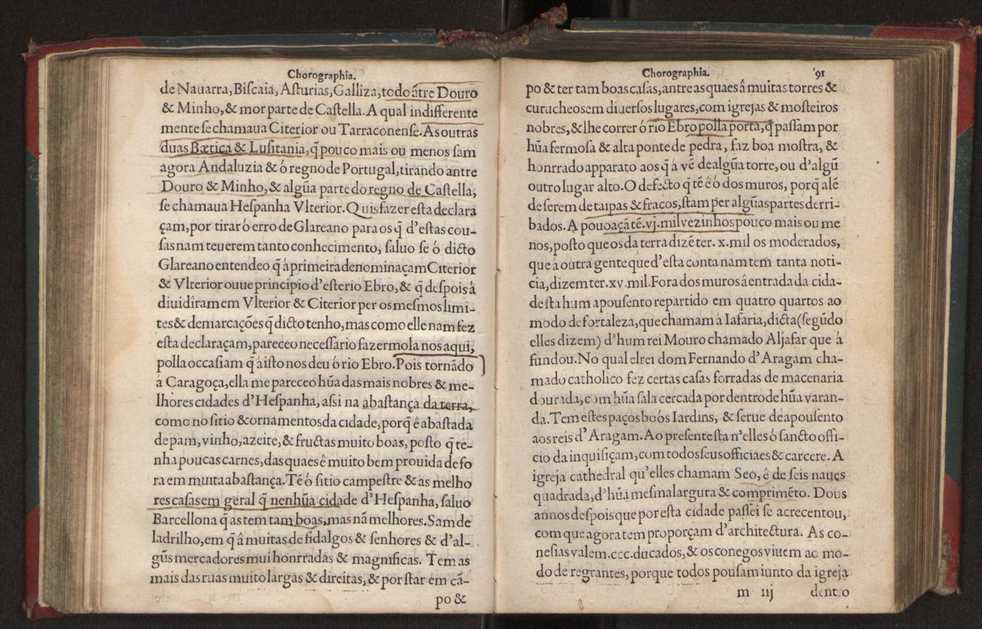 Chorographia.
de Nauarra, Biſcaia, Aſturias, Galliza, todo ãtre Douro
& Minho, & mor parte de Caſtella. A qual indifferente
mente ſe chamaua Citerior ou Tarraconenſe. As outras
duas Bætica & Luſitania, q̃ pouco mais ou menos ſam
agora Andaluzia & ó regno de Portugal, tirando antre
Douro & Minho, & algũa parte do regno de Caſtella,
ſe chamaua Heſpanha Vlterior. Quis fazer eſta declara
çam, por tirar ó erro de Glareano para os q̃ d'eſtas cou-
ſas nam teuerem tanto conhecimento, ſaluo ſe ó dicto
Glareano entendeo q̃ á primeira denominaçam Citerior
& Vlterior ouue principio d'eſte rio Ebro, & q̃ deſpois á
diuidiram em Vlterior & Citerior per os meſmos limi-
tes & demarcações q̃ dicto tenho, mas como elle nam fez
eſta declaraçam, pareceo neceſſario fazermola nos aqui,
polla occaſiam q̃ á iſto nos deu ó rio Ebro. Pois tornãdo
á Caragoça, ella me pareceo hũa das mais nobres & me-
lhores cidades d'Heſpanha, aſsi na abaſtança da terra,
como no ſitio & ornamentos da cidade, porq̃ é abaſtada
de pam, vinho, azeite, & fructas muito boas, poſto q̃ te-
nha poucas carnes, das quaes é muito bem prouida de fo
ra em muita abaſtança. Tē ó ſitio campeſtre & as melho
res caſas em geral q̃ nenhũa cidade d'Heſpanha, ſaluo
Barcellona q̃ as tem tam boas, mas nã melhores. Sam de
ladrilho, em q̃ á muitas de fidalgos & ſenhores & d'al-
gũs mercadores mui honrradas & magnificas. Tem as
mais das ruas muito largas & direitas, & por ſtar em cã-
po &
Chorographia. 91
po & ter tam boas caſas, antre as quaes á muitas torres &
curucheos em diuerſos lugares, com igrejas & moſteiros
nobres, & lhe correr ó rio Ebro polla porta, q̃ paſſam por
hũa fermoſa & alta ponte de pedra, faz boa moſtra, &
honrrado apparato aos q̃ á vē de algũa torre, ou d'algũ
outro lugar alto. O defecto q̃ tē é ó dos muros, porq̃ alē
de ſerem de taipas & fracos, ſtam per algũas partes derri-
bados. A pouoaçã tē .vj. mil vezinhos pouco mais ou me
nos, poſto que os da terra dizē ter .x. mil os moderados,
que á outra gente que d'eſta conta nam tem tanta noti-
cia, dizem ter .xv. mil. Fora dos muros á entrada da cida-
de ſta hum apouſento repartido em quatro quartos ao
modo de fortaleza, que chamam á Iafaria, dicta (ſegũdo
elles dizem) d'hum rei Mouro chamado Aljafar que á
fundou. No qual elrei dom Fernando d'Aragam cha-
mado catholico fez certas caſas forradas de macenaria
dourada, com hũa ſala cercada por dentro de hũa varan-
da. Tem eſtes paços boõs Iardins, & ſerue de apouſento
aos reis d'Aragam. Ao preſente ſta n'elles ó ſancto offi-
cio da inquiſiçam, com todos ſeus officiaes & carcere. A
igreja cathedral qu'elles chamam Seo, é de ſeis naues
quadrada, d'hũa meſma largura & comprimēto. Dous
annos deſpois que por eſta cidade paſſei ſe acrecentou,
com que agora tem proporçam d'architectura. As co-
neſias valem .ccc. ducados, & os conegos viuem ao mo-
do de regrantes, porque todos pouſam iunto da igreja
m iij dentro